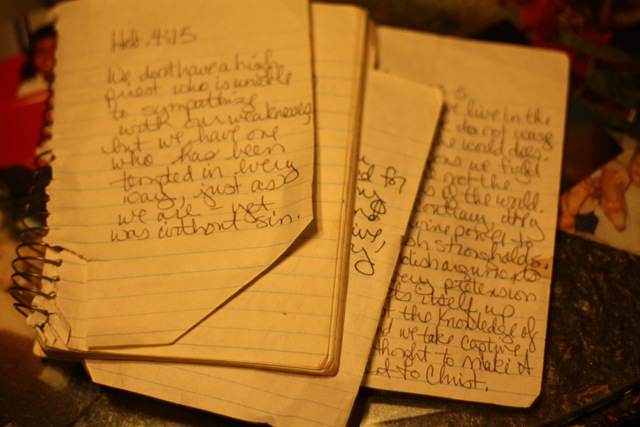 Heb. 4:15
We don't have a high
priest who is unable
to sympathize
with our weaknesses,
but we have one
who has been
tempted in every
way, just as
we are - yet
was without sin.
d for
$
live in the
do not wage
world does.
we fight
not the
of the world.
contrary, they
divine power to
strongholds.
arguments
every pretension
itself up
the knowledge of
d we take captive
thought to make it
to Christ.